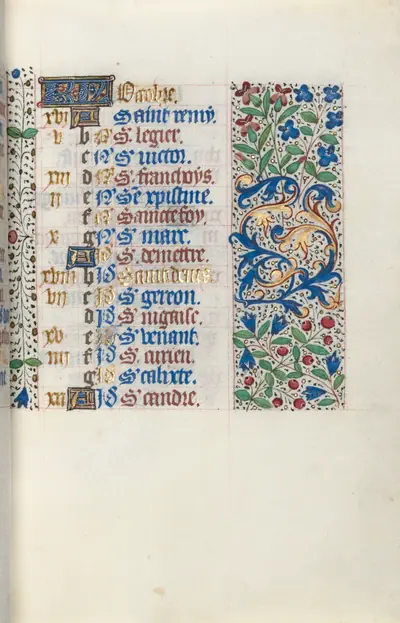 KL Octobre.
xvi A Saint remy.
v b N S. legier.
c N S. victor.
xiii d N S. franchoys.
ii e N Se xpistine.
f N Saincte foy.
x g N S. marc.
A Id S. demettre.
xviii b Id Saint denis
vii c Id S. gereon.
d Id S. nigaise.
xv e Id S. venant.
iiii f Id S. aurien.
g Id S. calixte.
xii A Id S. candre.